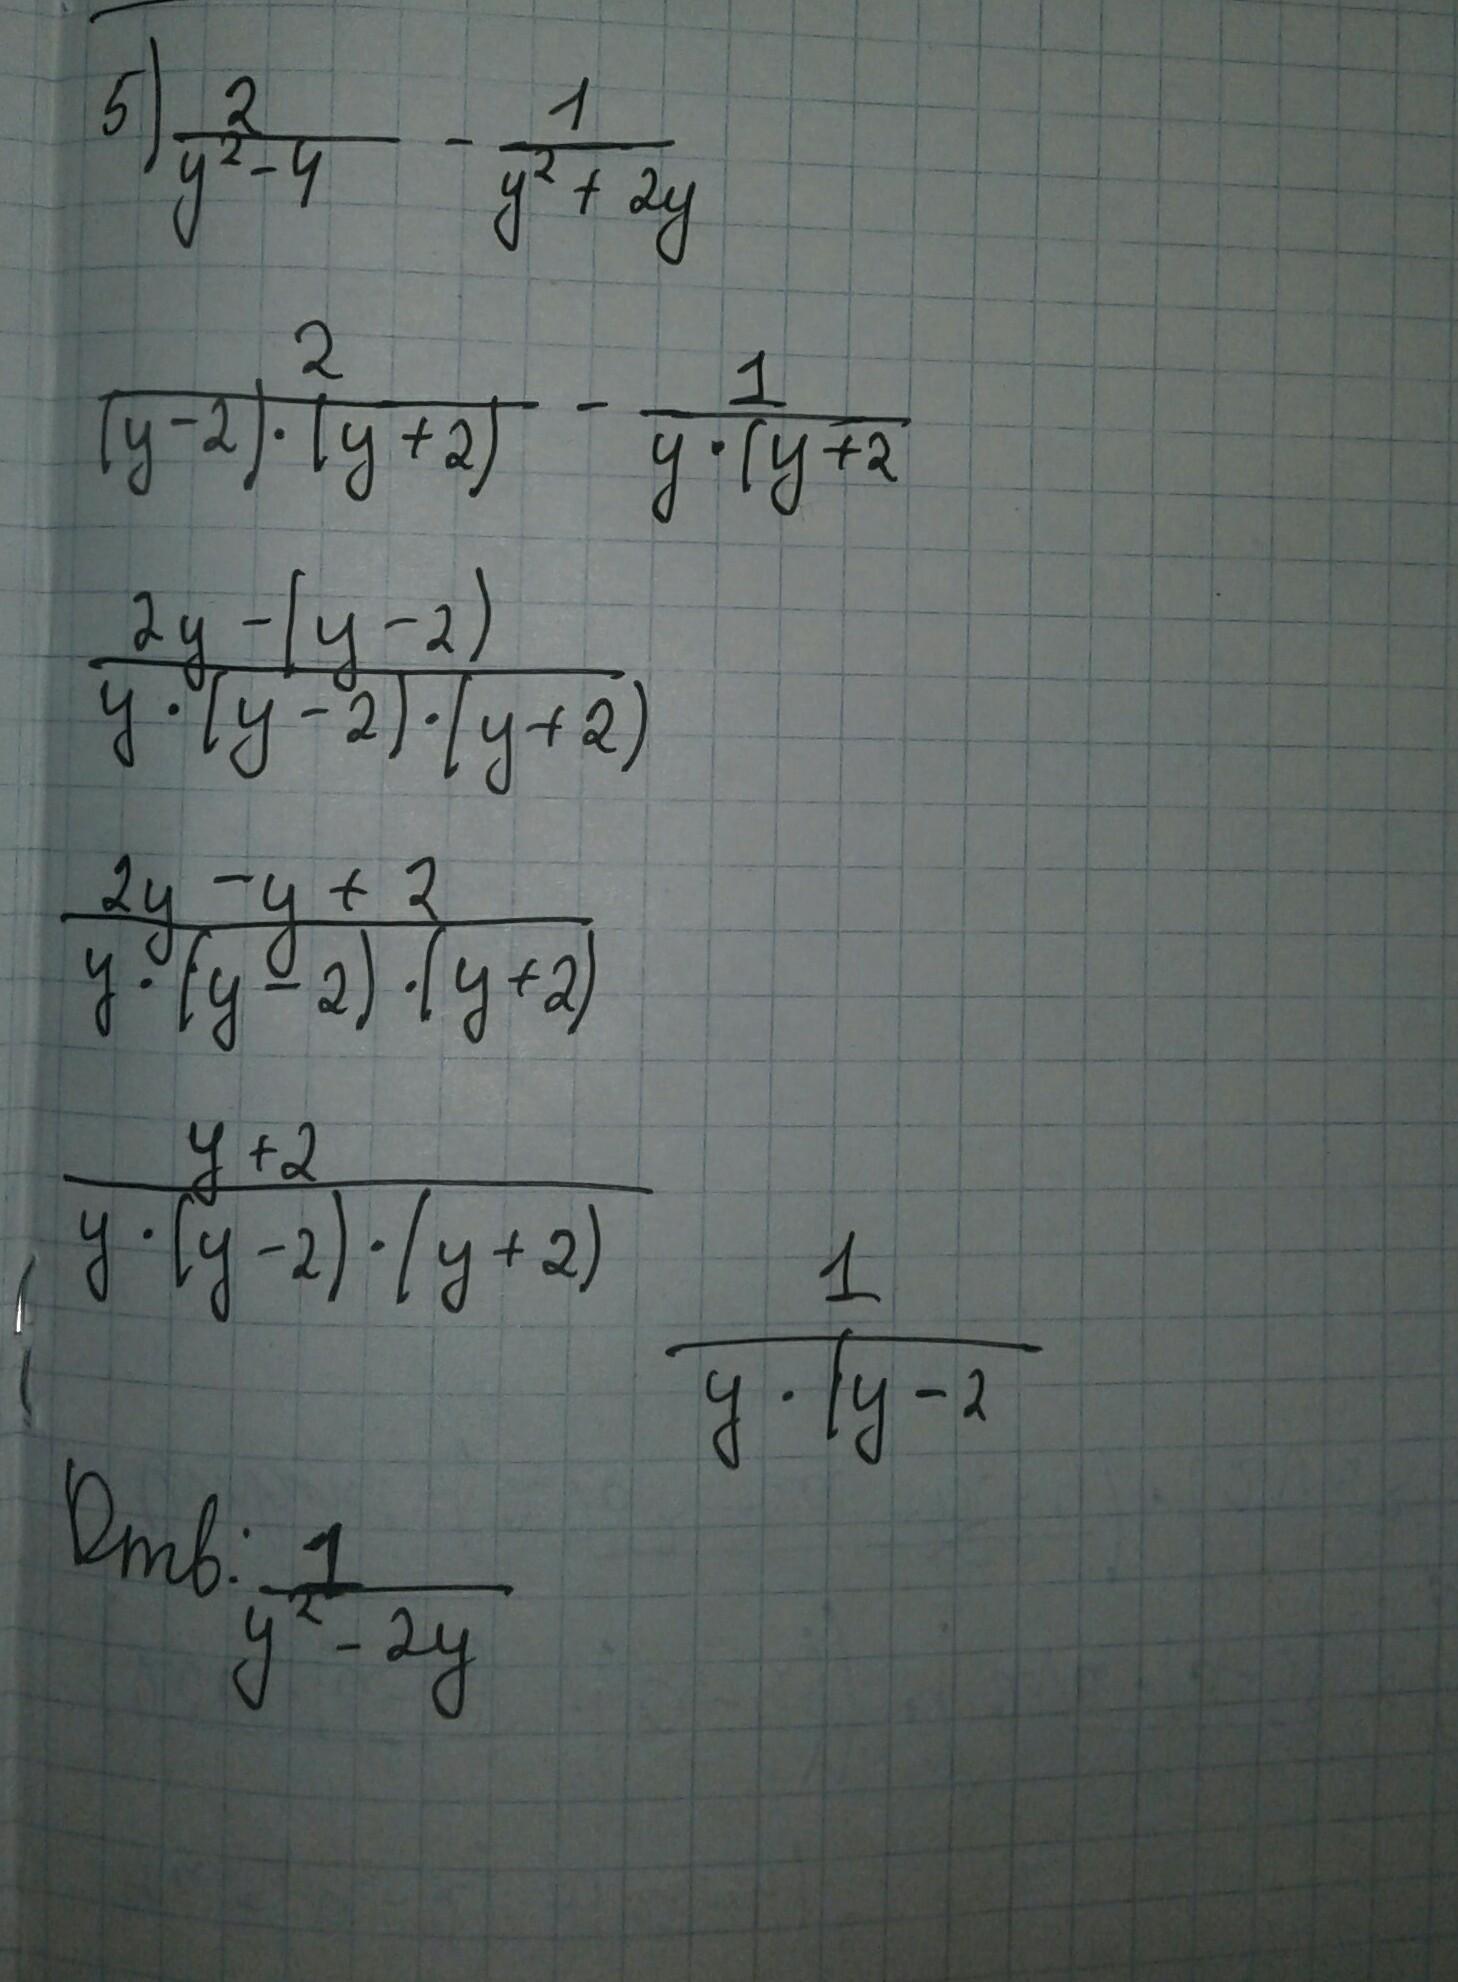 5) 2/(y² - 4) - 1/(y² + 2y)
2/((y - 2) · (y + 2)) - 1/(y · (y + 2
(2y - (y - 2))/(y · (y - 2) · (y + 2))
(2y - y + 2)/(y · (y - 2) · (y + 2))
(y + 2)/(y · (y - 2) · (y + 2))
1/(y · (y - 2
Отв: 1/(y² - 2y)